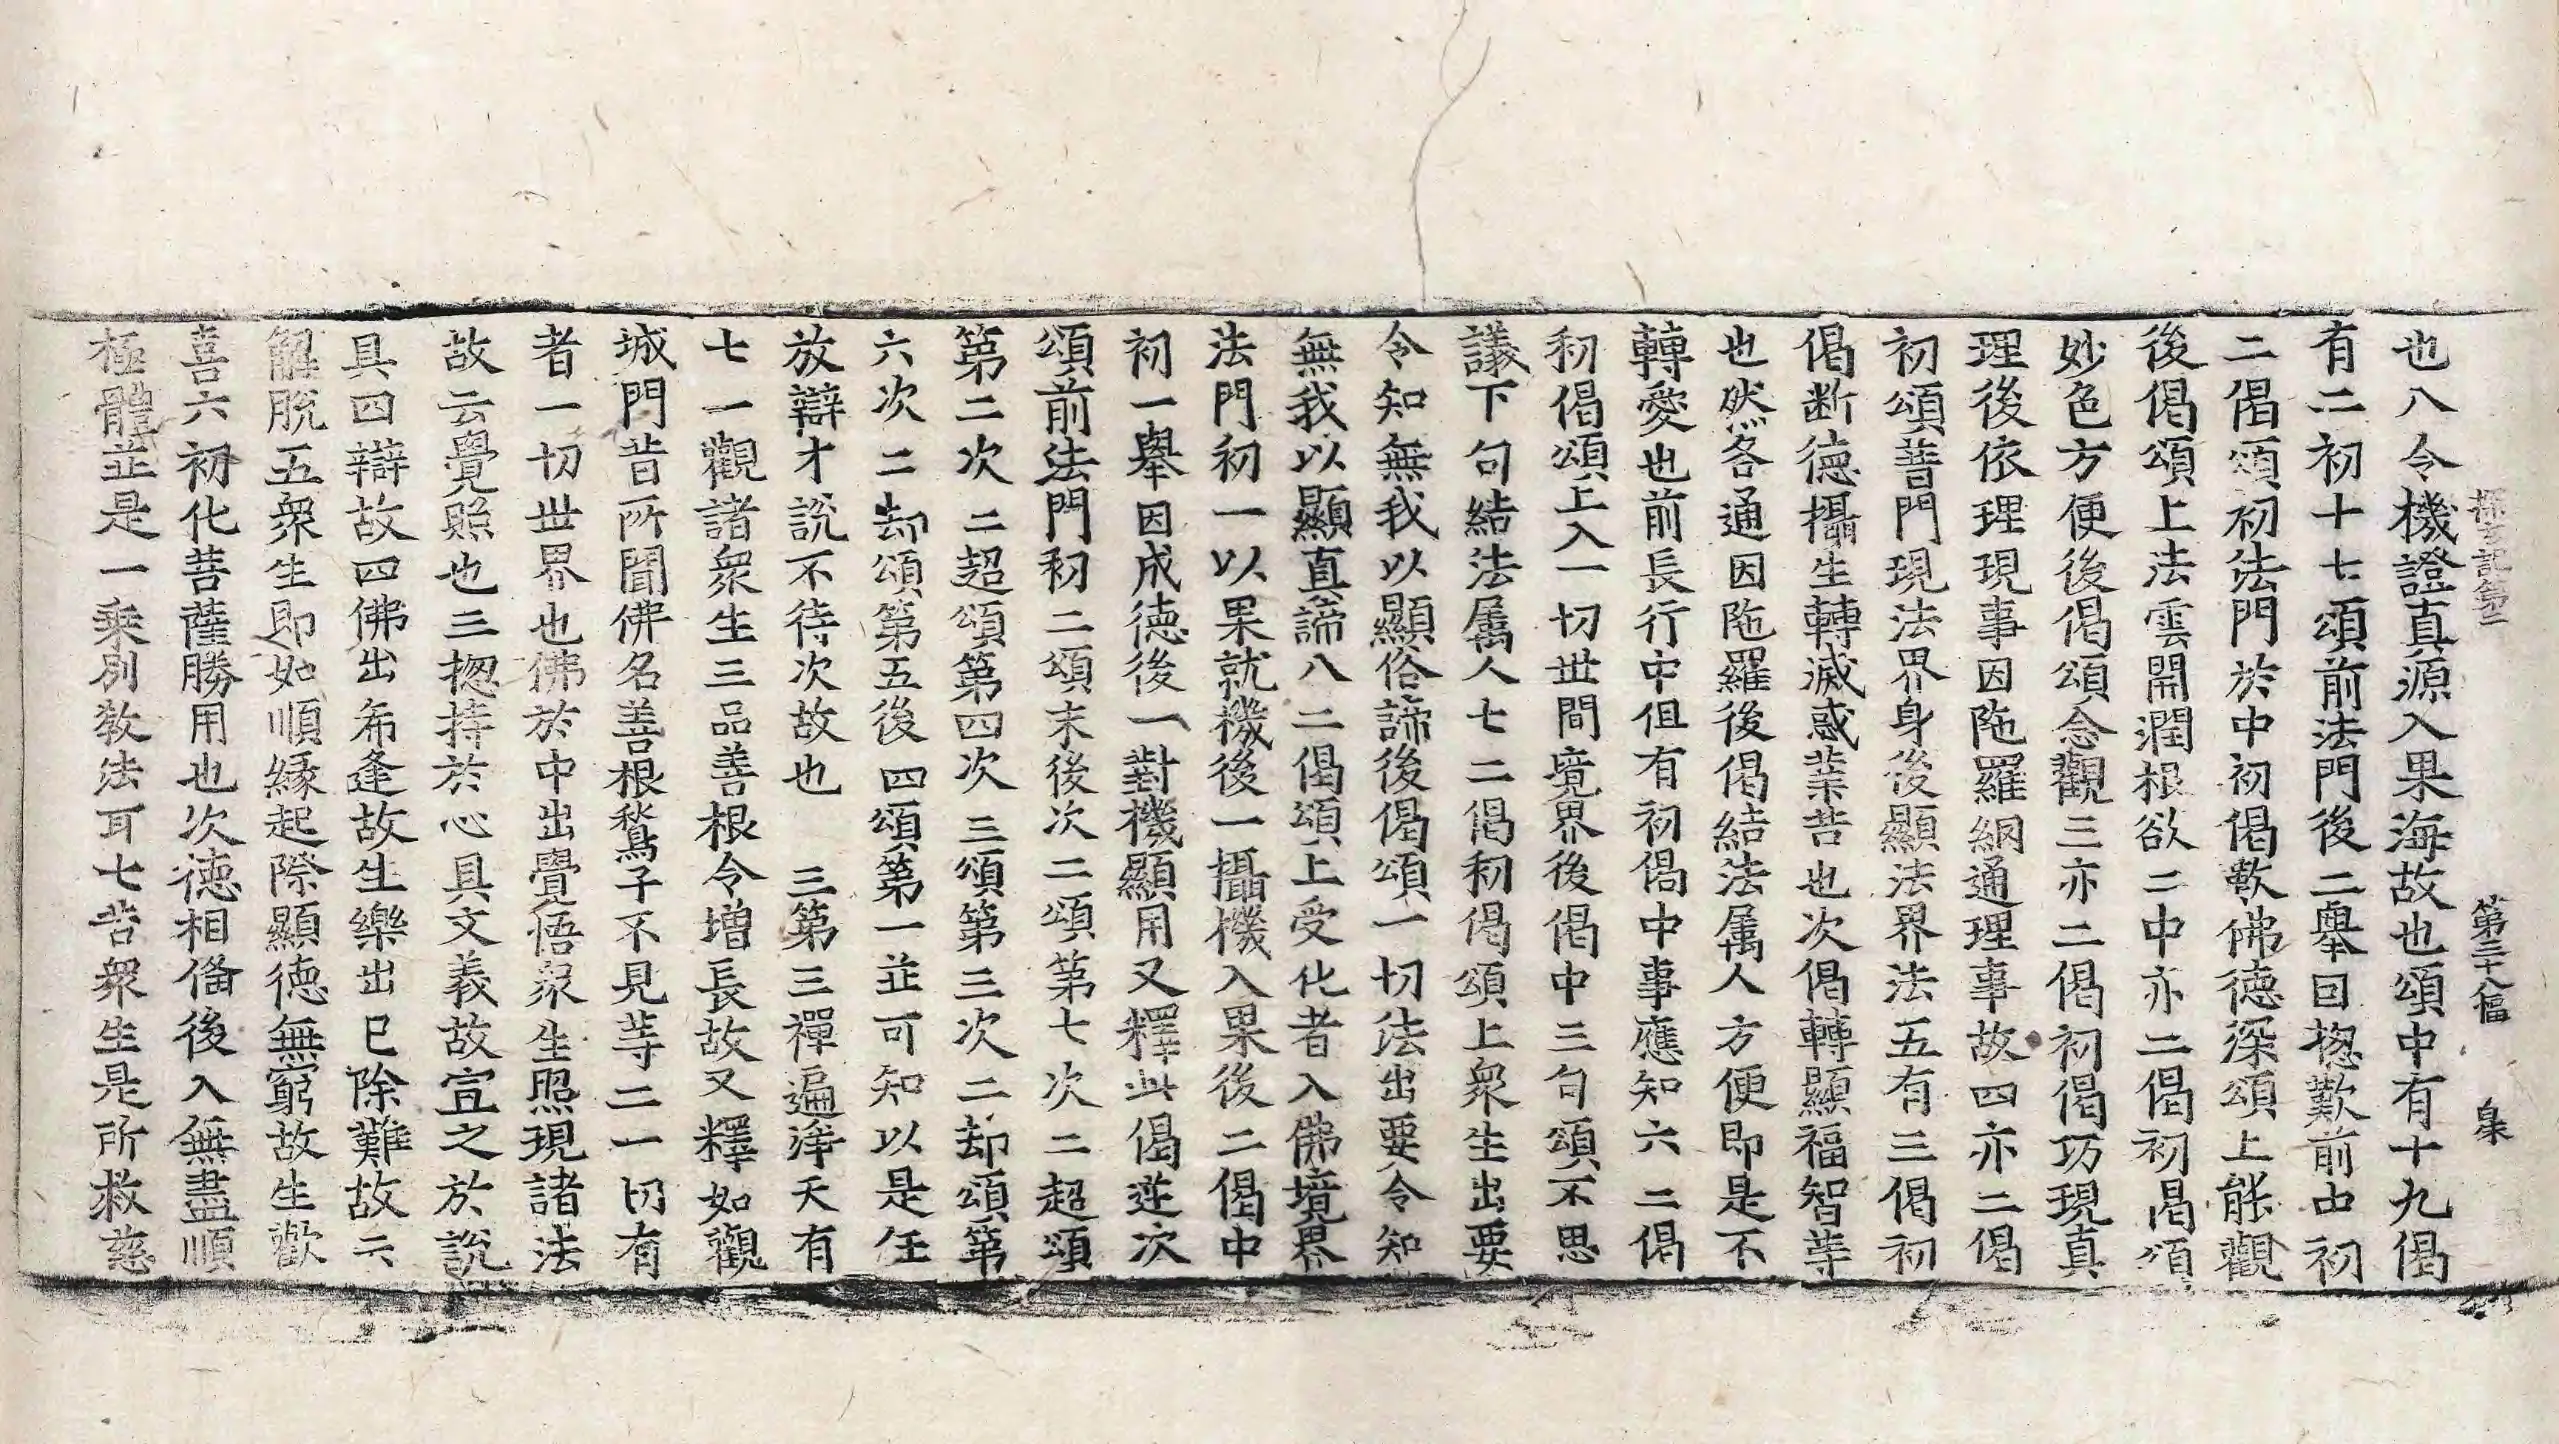 探玄記第二 第三十八幅
也八令機證真源入果海故也頌中有十九偈
有二初十七頌前法門後二舉回揔歎前中初
二偈頌初法門於中初偈歎佛德深頌上能觀
後偈頌上法雲開潤根欲二中亦二偈初偈頌
妙色方便後偈頌念觀三亦二偈初偈巧現真
理後依理現事因陁羅網通理事故四亦二偈
初頌普門現法界身後顯法界法五有三偈初
偈断德攝生轉滅惑業苦也次偈轉顯福智等
也然各通因陁羅後偈結法属人方便即是不
轉愛也前長行中但有初偈中事應知六二偈
初偈頌上入一切世間境界後偈中三句頌不思
議下句結法属人七二偈初偈頌上衆生出要
令知無我以顯俗諦後偈頌一切法出要令知
無我以顯真諦八二偈頌上受化者入佛境界
法門初一以果就機後一攝機入果後二偈中
初一舉因成德後一對機顯用又釋此偈逆次
頌前法門初二頌末後次二頌第七次二超頌
第二次二超頌第四次三頌第三次二却頌第
六次二却頌第五後四頌第一並可知以是任
放辯才說不待次故也 三第三禪遍淨天有
七一觀諸衆生三品善根令增長故又釋如觀
城門昔所聞佛名善根鶖子不見等二一切有
者一切世界也佛於中出覺悟衆生照現諸法
故云覺照也三揔持於心具文義故宣之於說
具四辯故四佛出希逢故生樂出已除難故云
解脫五衆生即如順緣起際顯德無窮故生歡
喜六初化菩薩勝用也次德相俻後入無盡順
極體並是一乗別教法耳七苦衆生是所救慈